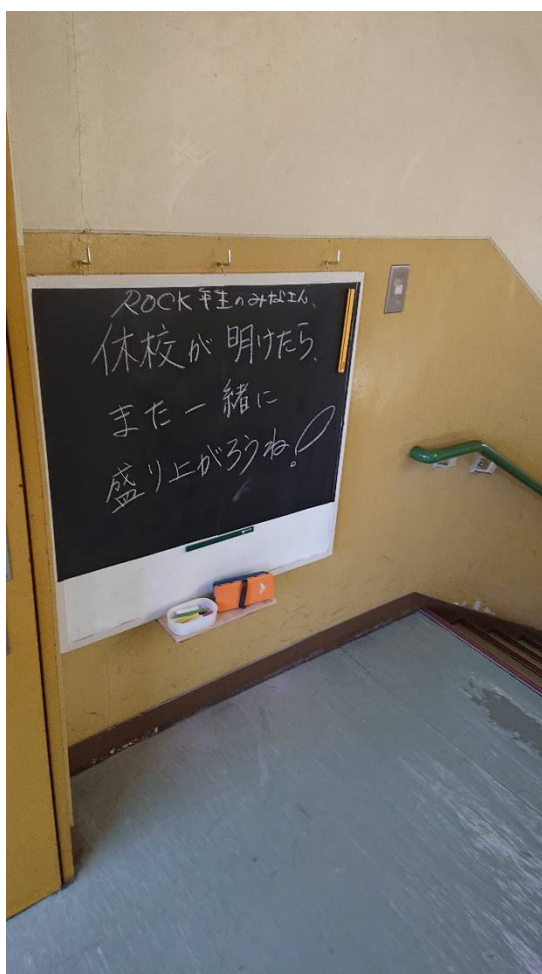 ROCK 年生のみなさん、
休校が明けたら、
また一緒に
盛り上がろうね!